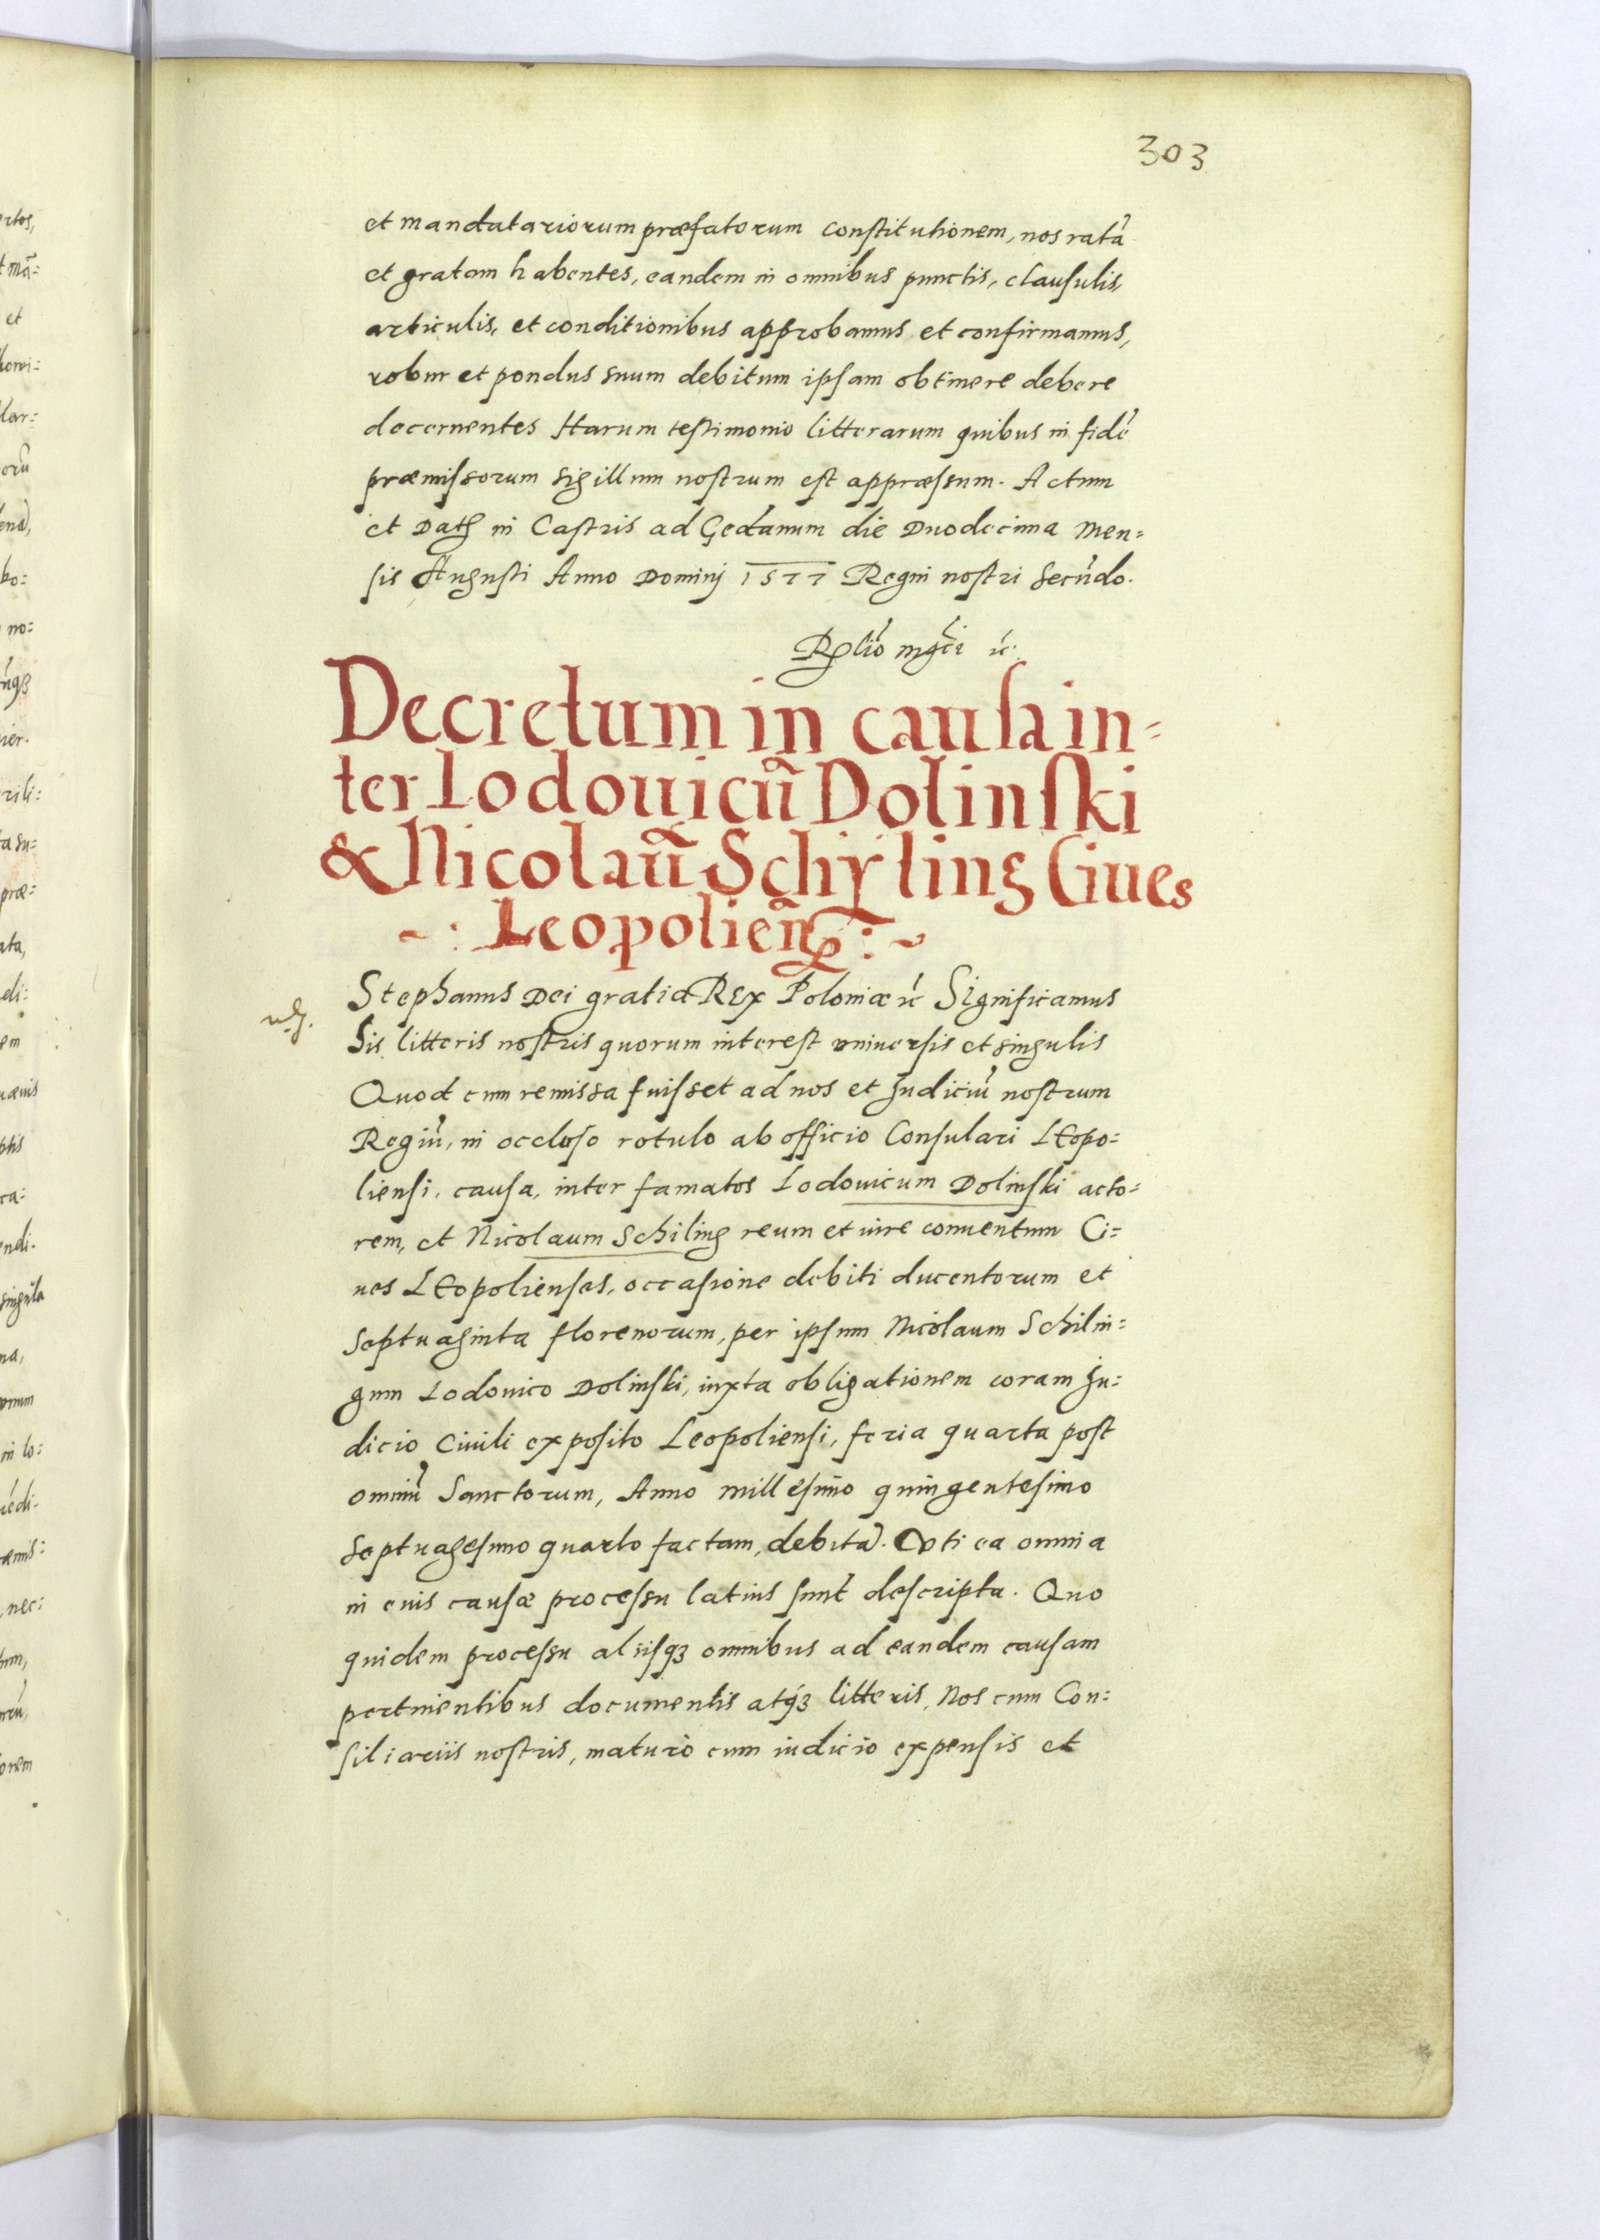 303
et mandatariorum præfatorum constitutionem, nos ratã
et gratam habentes, eandem in omnibus punctis, clausulis,
articulis, et conditionibus approbamus et confirmamus,
robur et pondus suum debitum ipsam obtinere debere
decernentes Harum testimonio litterarum quibus in fidẽ
præmissorum sigillum nostrum est appræssum. Actum
et Dat in Castris ad Gedanum die Duodecima Men=
sis Augusti Anno Dominj 1577 Regni nostri secũdo.
Rlio mgci
Decretum in causa in=
ter Lodouicũ Dolinski
& Nicolaũ Schyling Ciues
Leopolieñ
Stephanus Dei gratia Rex Poloniæ Significamus
his litteris nostris quorum interest vniuersis et singulis
Quod cum remissa fuisset ad nos et Judiciũ nostrum
Regiũ, in occloso rotulo ab officio Consulari Leopo=
liensi, causa, inter famatos Lodouicum Dolinski acto=
rem, et Nicolaum Schiling reum et iure conuentum Ci=
ues Leopolienses, occasione debiti ducentorum et
septuaginta florenorum, per ipsum Nicolaum Schilin=
gum Lodouico Dolinski, iuxta obligationem coram Ju=
dicio Ciuili exposito Leopoliensi, feria quarta post
omniũ Sanctorum, Anno millesimo quingentesimo
septuagesimo quarto factam, debitã. Vti ea omnia
in eius causæ processu latius sunt descripta. Quo
quidem processu alijsqꝫ omnibus ad eandem causam
pertinentibus documentis atqꝫ litteris, Nos cum Con=
siliariis nostris, maturo cum iudicio expensis et